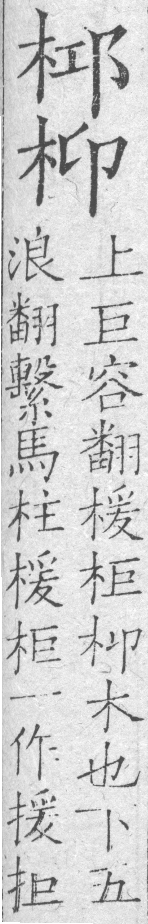 桏枊
上巨容翻楥柜枊木也下五
浪翻繫馬柱楥柜一作援拒